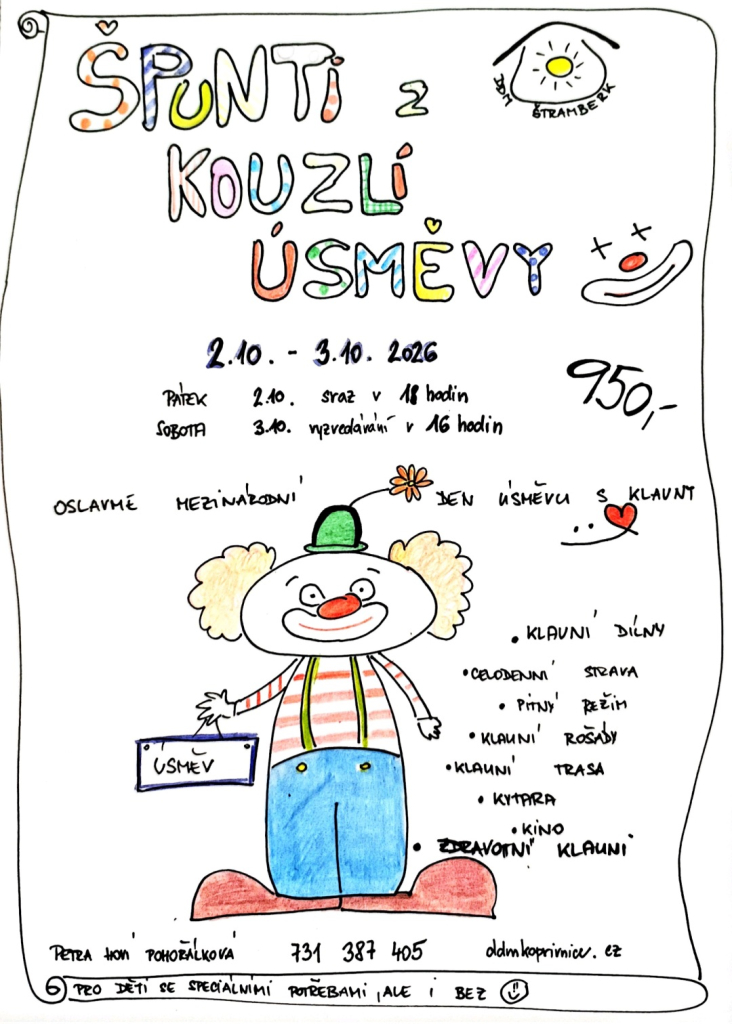 ŠPUNTI Z
KOUZLÍ
ÚSMĚVY
DDM ŠTRAMBERK
2.10. - 3.10. 2026
950,-
PÁTEK 2.10. sraz v 18 hodin
SOBOTA 3.10. vyzvedávání v 16 hodin
OSLAVME MEZINÁRODNÍ DEN ÚSMĚVU S KLAUNY
• KLAUNÍ DÍLNY
• CELODENNÍ STRAVA
• PITNÝ REŽIM
• KLAUNÍ ROŠÁDY
• KLAUNÍ TRASA
ÚSMĚV
• KYTARA
• KINO
• ZDRAVOTNÍ KLAUNI
PETRA POHOŘÁLKOVÁ 731 387 405 ddmkoprivnice.cz
PRO DĚTI SE SPECIÁLNÍMI POTŘEBAMI, ALE I BEZ